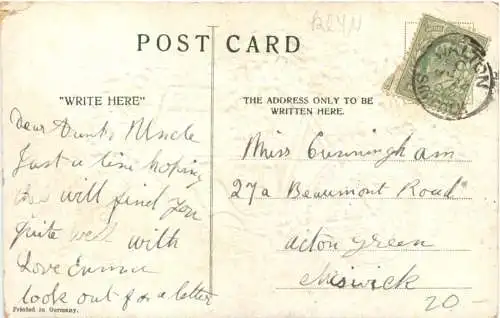 BRYN
POST CARD
"WRITE HERE"
THE ADDRESS ONLY TO BE
WRITTEN HERE.
Dear Aunt & Uncle
Just a line hoping
this will find you
quite well with
Love Emma
look out for a letter
Printed in Germany.
Miss Cunningham
27a Beaumont Road
Acton Green
Chiswick
20-
WALTON